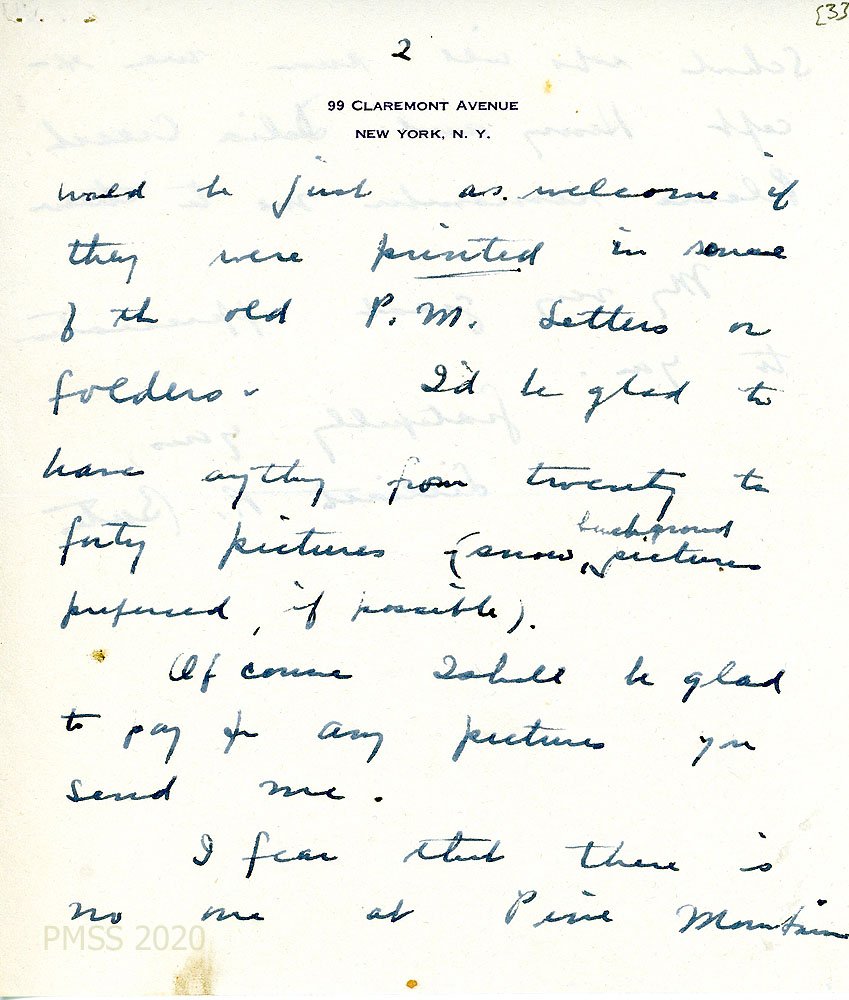 [33
2
99 CLAREMONT AVENUE
NEW YORK, N. Y.
would be just as welcome if
they were printed in some
of the old P.M. Letters or
folders. I'd be glad to
have anything from twenty to
background
forty pictures (snow, pictures
preferred, if possible).
Of course I shall be glad
to pay for any pictures you
send me.
I fear that there is
no one at Pine Mountain
PMSS 2020